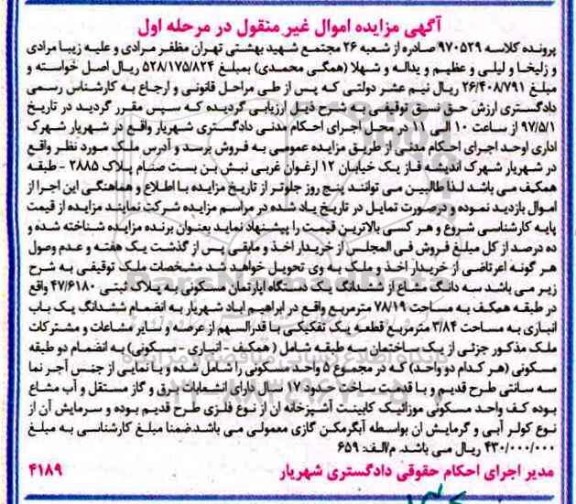 آگهی مزایده اموال غیر منقول در مرحله اول
پرونده کلاسه ۹۷۰۵۲۹ صادره از شعبه ۲۶ مجتمع شهید بهشتی تهران مظفر مرادی و علیه زیبا مرادی
و زلیخا و لیلی و عظیم و یداله و شهلا (همگی محمدی) بمبلغ ۵۲۸/۱۷۵/۸۲۴ ریال اصل خواسته و
مبلغ ۲۶/۴۰۸/۷۹۱ ریال نیم عشر دولتی که پس از طی مراحل قانونی و ارجاع به کارشناس رسمی
دادگستری ارزش حق نسق توقیفی به شرح ذیل ارزیابی گردیده که سپس مقرر گردید در تاریخ
۹۷/۵/۱ از ساعت ۱۰ الی ۱۱ در محل اجرای احکام مدنی دادگستری شهریار واقع در شهریار شهرک
اداری اوحد اجرای احکام مدنی از طریق مزایده عمومی به فروش برسد و آدرس ملک مورد نظر واقع
در شهریار شهرک اندیشه فاز یک خیابان ۱۲ ارغوان غربی نبش بن بست صنام پلاک ۲۸۸۵ - طبقه
همکف می باشد لذا طالبین می توانند پنج روز جلوتر از تاریخ مزایده با اطلاع و هماهنگی این اجرا از
اموال بازدید نموده و درصورت تمایل در تاریخ یاد شده در مراسم مزایده شرکت نمایند مزایده از قیمت
پایه کارشناسی شروع و هر کسی بالاترین قیمت را پیشنهاد نماید بعنوان برنده مزایده شناخته شده و
ده درصد از کل مبلغ فروش فی المجلس از خریدار اخذ و مابقی پس از گذشت یک هفته و عدم وصول
هر گونه اعرتاضی از خریدار اخذ و ملک به وی تحویل خواهد شد مشخصات ملک توقیفی به شرح
زیر می باشد سه دانگ مشاع از ششدانگ یک دستگاه اپارتمان مسکونی به پلاک ثبتی ۴۷/۶۱۸۰ واقع
در طبقه همکف به مساحت ۷۸/۱۹ مترمربع واقع در ابراهیم اباد شهریار به انضمام ششدانگ یک باب
انباری به مساحت ۳/۸۴ مترمربع قطعه یک تفکیکی با قدرالسهم از عرصه و سایر مشاعات و مشترکات
ملک مذکور جزئی از یک ساختمان سه طبقه شامل ( همکف - انباری - مسکونی) به انضمام دو طبقه
مسکونی (هر کدام دو واحد) که در مجموع ۵ واحد مسکونی را شامل شده و با نمایی از جنس آجر نما
سه سانتی طرح قدیم و با قدمت ساخت حدود ۱۷ سال دارای انشعابات برق و گاز مستقل و آب مشاع
بوده کف واحد مسکونی موزائیک کابینت آشپزخانه ان از نوع فلزی طرح قدیم بوده و سرمایش آن از
نوع کولر آبی و گرمایش ان بواسطه آبگرمکن گازی معمولی می باشد.ضمنا مبلغ کارشناسی به مبلغ
۴۳۰/۰۰۰/۰۰۰ ریال می باشد. م/الف: ۶۵۹
مدیر اجرای احکام حقوقی دادگستری شهریار ۴۱۸۹